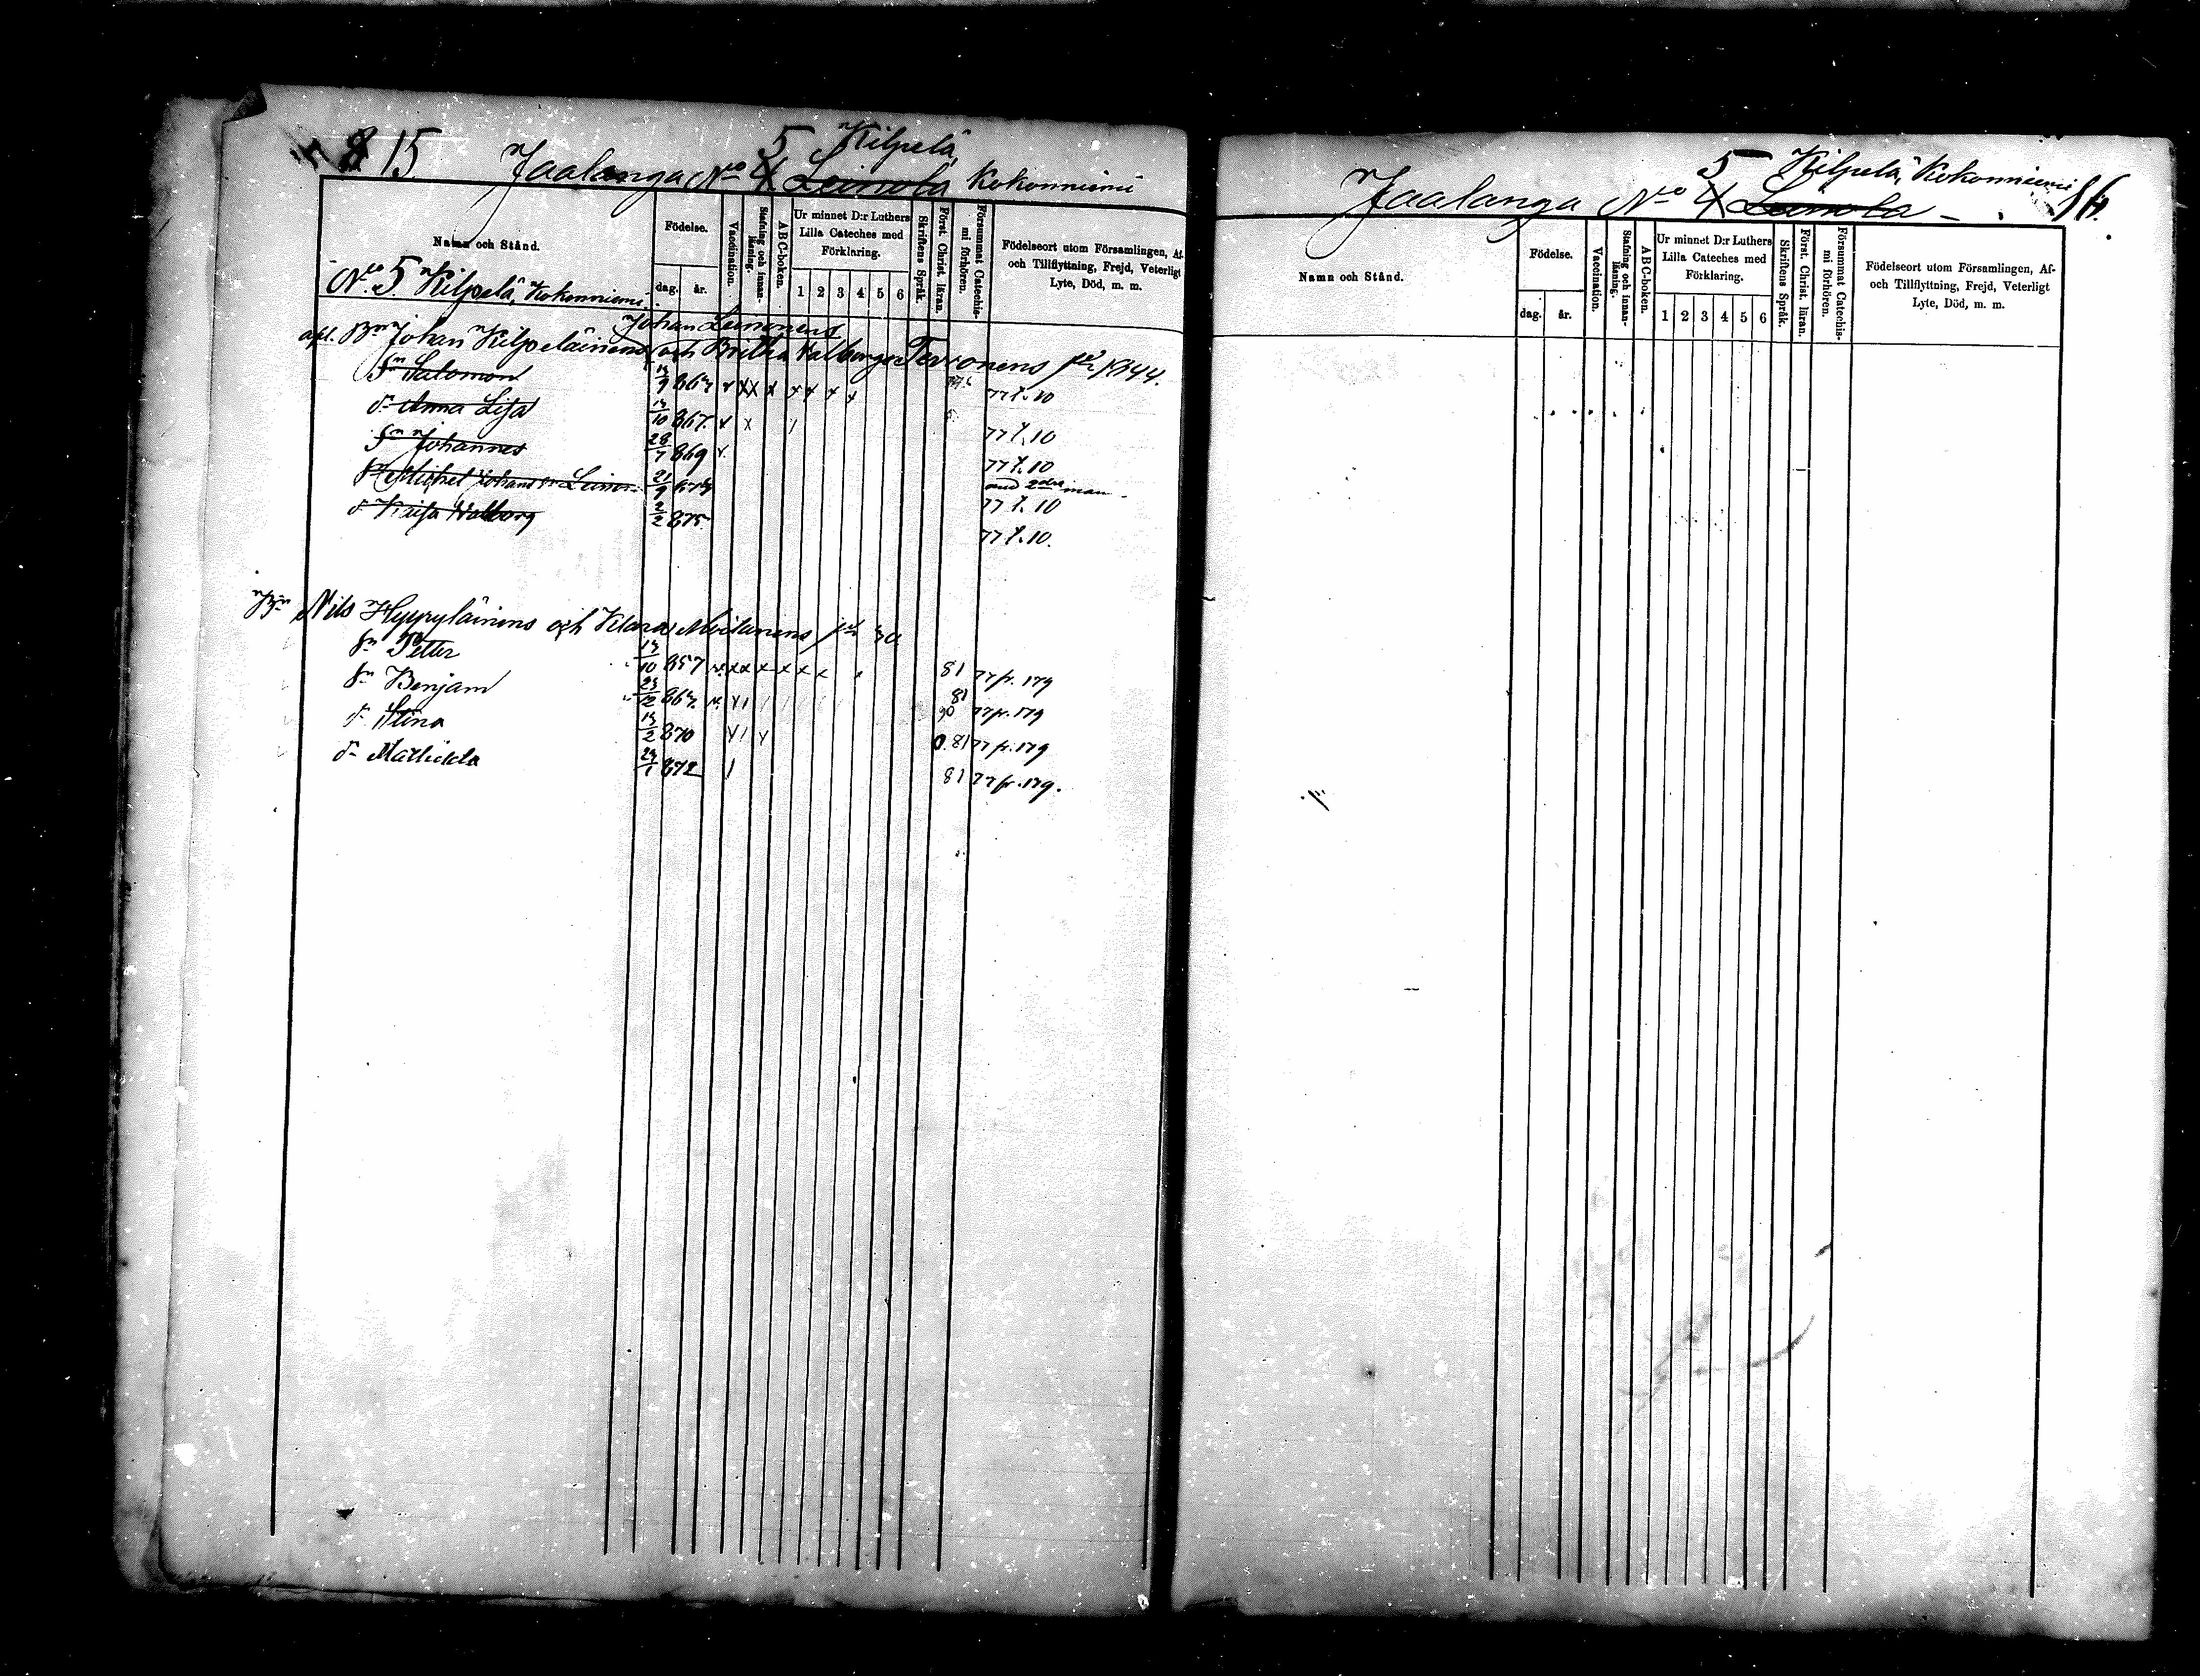 15
5 Kilpelä,
Jaalanga No 4 Leinola Kokonniemi
Namn och Stånd.
Födelse.
dag. år.
Vaccination.
Stafning och innan-läsning.
ABC-boken.
Ur minnet D:r Luthers
Lilla Cateches med
Förklaring.
1 2 3 4 5 6
Skriftens Språk.
Först. Christ. läran.
Försummat Catechis-mi förhören.
Födelseort utom Församlingen, Af-
och Tillflyttning, Frejd, Veterligt
Lyte, Död, m. m.
No 5 Kilpelä, Kokonniemi
Johan Leinonens
afl. Bn Johan Kilpeläinens och Britha Walborg Tervonens 1844.
Sn Salomon 77 t. 10
dr Anna Lisa 13/10 867. 77 t. 10
Sn Johannes 28/7 869 77 t. 10
med 2dra man
Michel Johans sn Leinon 21/9 77 t. 10
dr Kaisa Walborg 2/2 875. 77 t. 10.
Bn Nils Hyyryläinens och Klara Moilanens
sn Petter 13/10 857 81 77 fr. 179
sn Benjam 81 77 fr. 179
dr Stina 13/2 870 81 77 fr. 179
dr Mathilda 872 81 77 fr. 179.
5 Kilpelä, Kokonniemi
Jaalanga No 4 Leinola 16.
Namn och Stånd.
Födelse.
dag. år.
Vaccination.
Stafning och innan-läsning.
ABC-boken.
Ur minnet D:r Luthers
Lilla Cateches med
Förklaring.
1 2 3 4 5 6
Skriftens Språk.
Först. Christ. läran.
Försummat Catechis-mi förhören.
Födelseort utom Församlingen, Af-
och Tillflyttning, Frejd, Veterligt
Lyte, Död, m. m.